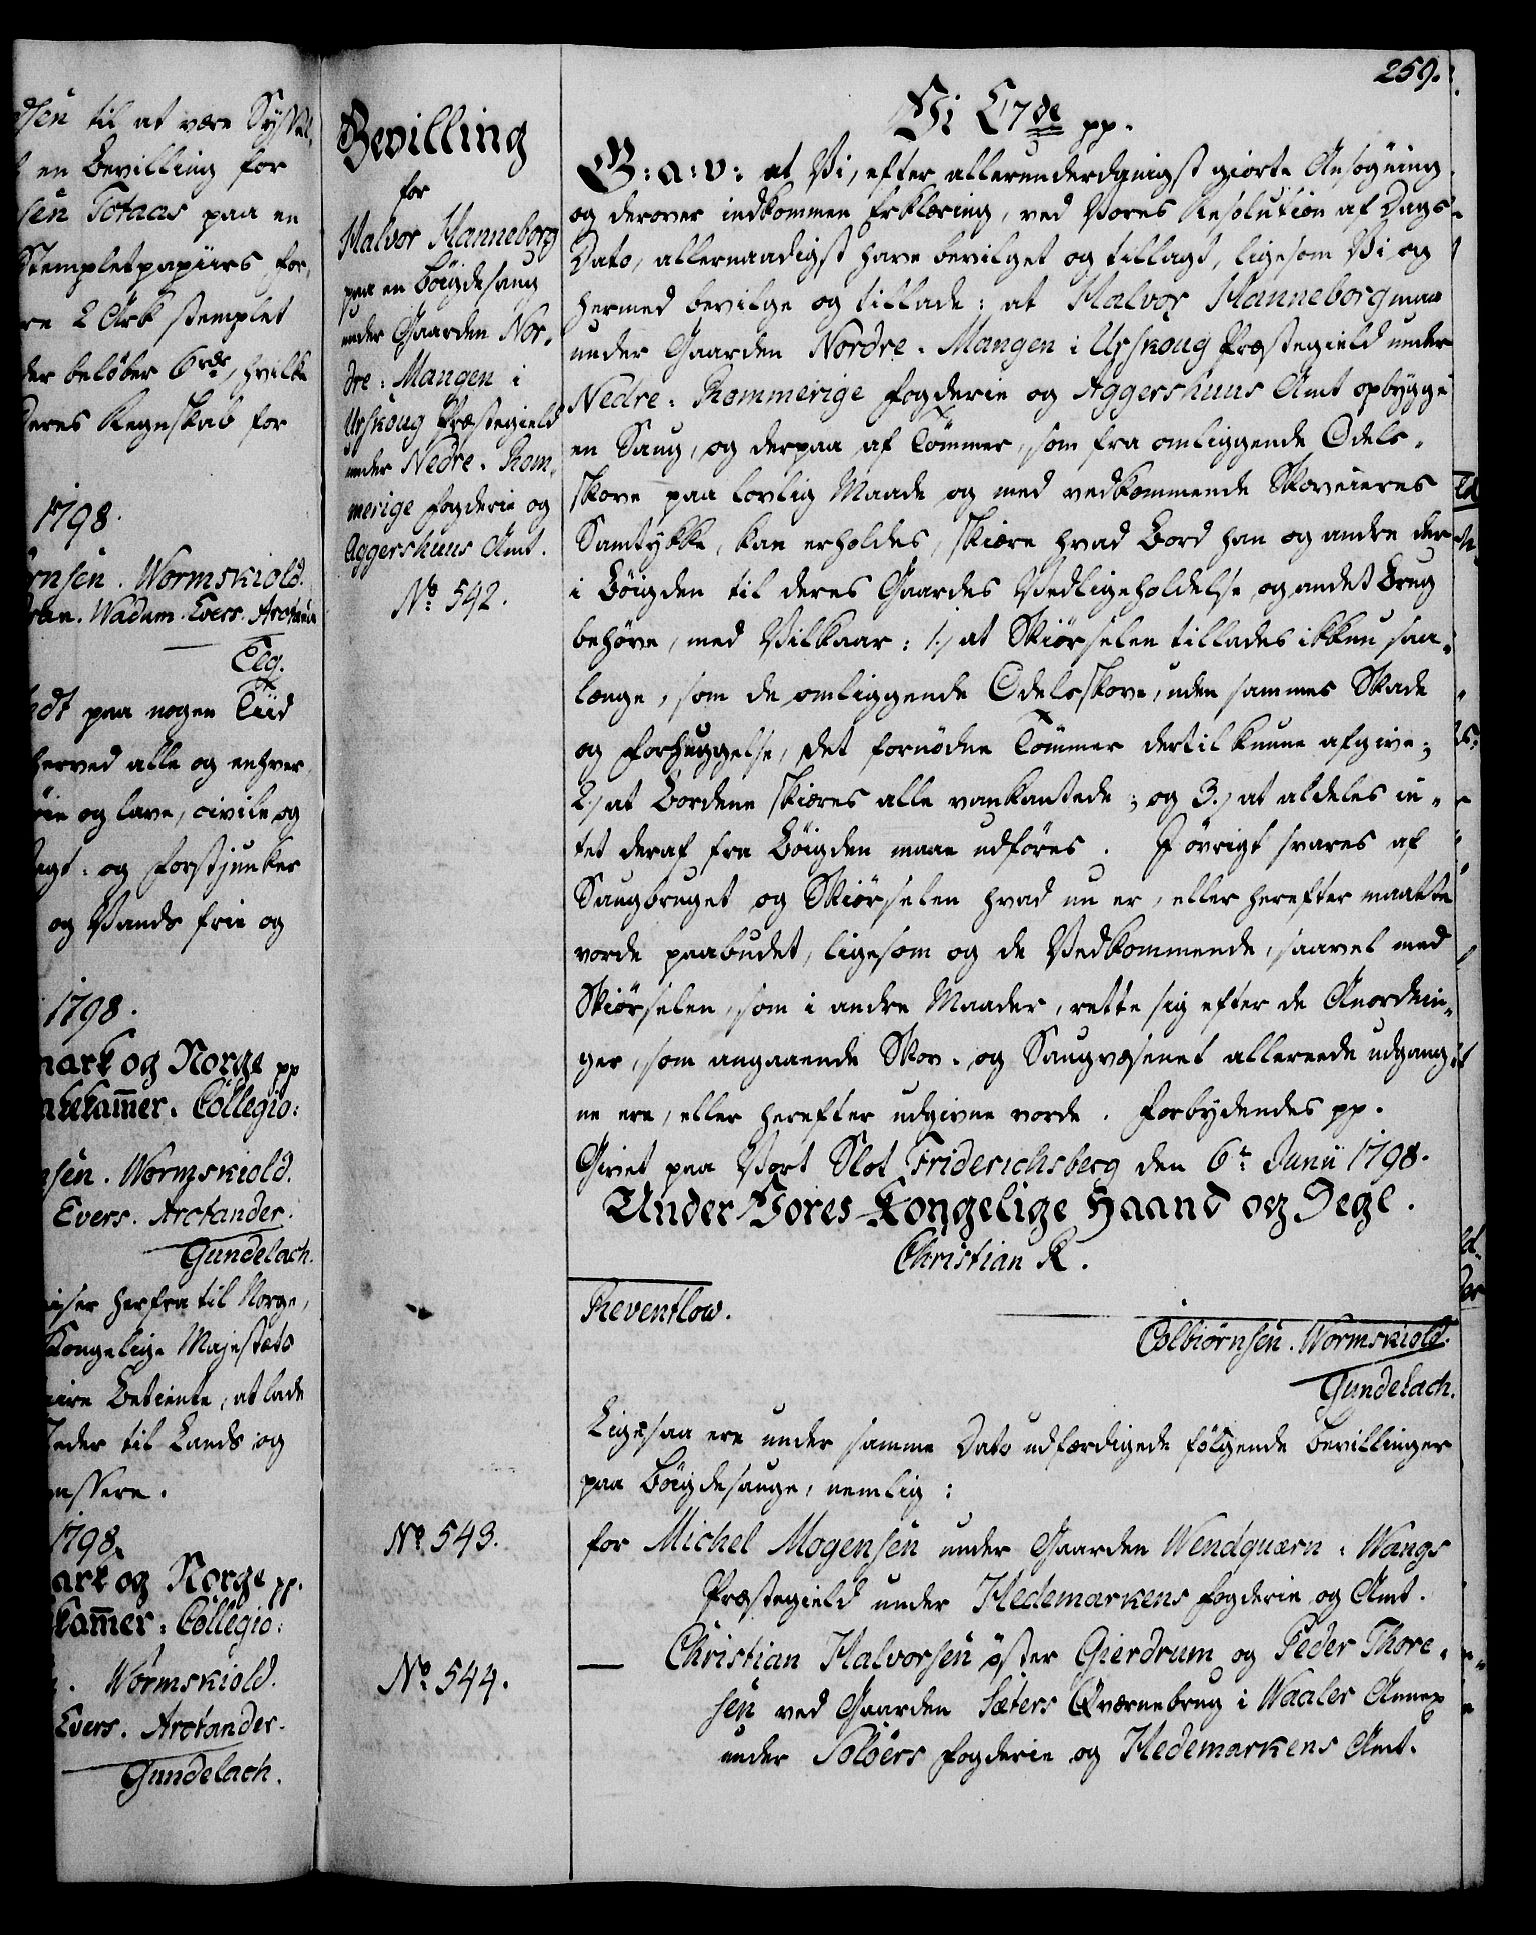 259.
dsen til at være
en Bevilling for
sen Totaas paa en
Stempletpapiirs for,
re 2 Ark stemplet
der beløber 6 rdr, hvilke
deres Regnskab for
1798.
rnsen. Wormskiold.
Wadum. Evers. Arctander
edt paa nogen Tiid
herved alle og enhver,
øie og lave, civile og
Jagt- og Forstjunker
og Vands frie og
1798.
mark og Norge pp
ntekam̅er-Collegio:
nsen. Wormskiold.
Evers. Arctander.
Gundelach.
reiser herfra til Norge,
Kongelige Majestæts
taire Betiente, at lade
Steder til Lands og
passere.
1798.
mark og Norge pp.
kam̅er-Collegio:
Wormskiold.
Evers. Arctander.
Gundelach.
Bevilling
for
Halvor Hanneborg
paa en Bøigdesaug
under Gaarden Nor-
dre-Mangen i
Urskoug Præstegield
under Nedre-Rom-
merige Fogderie og
Aggershuus Amt.
No. 542.
Vi C7de pp.
G: a: v: at Vi, efter allerunderdanigst giorte Ansøgning
og derover indkommen Erklæring, ved Vores Resolution af Dags
Dato, allernaadigst have bevilget og tilladt, ligesom Vi og
hermed bevilge og tillade: at Halvor Hanneborg maae
under Gaarden Nordre-Mangen i Urskoug Præstegield under
Nedre-Rommerige Fogderie og Aggershuus Amt opbygge
en Saug, og derpaa af Tømmer, som fra omliggende Odels-
skove paa lovlig Maade og med vedkommende Skoveieres
Samtykke, kan erholdes, skiære hvad Bord han og andre der
i Bøigden til deres Gaardes Vedligeholdelse og andet Brug
behøve, med Vilkaar: 1.) at Skiørselen tillades ikkun saa-
længe, som de omliggende Odelsskove, uden sammes Skade
og Forhuggelse, det fornødne Tømmer dertil kunne afgive;
2.) at Bordene skiæres alle vankantede; og 3.) at aldeles in-
tet deraf fra Bøigden maae udføres. I øvrigt svares af
Saugbruget og Skiørselen hvad nu er, eller herefter maatte
vorde paabudet, ligesom og de Vedkommende, saavel med
Skiørselen, som i andre Maader, rette sig efter de Anordnin-
ger, som angaaende Skov- og Saugvæsenet allereede udgang-
ne ere, eller herefter udgivne vorde. Forbydendes pp.
Givet paa Vort Slot Friderichsberg den 6te Junii 1798.
Under Vores Kongelige Haand og Segl.
Christian R.
Reventlow.
Colbiørnsen. Wormskiold.
Gundelach.
Ligesaa ere under samme Dato udfærdigede følgende Bevillinger
paa Bøigdesauge, nemlig:
No. 543.
for Michel Mogensen under Gaarden Wendquærn i Wangs
Præstegield under Hedemarkens Fogderie og Amt.
No. 544.
— Christian Halvorsen øster Gierdrum og Peder Thore-
sen ved Gaarden Sæters Qværnebrug i Waaler Annex
under Soløers Fogderie og Hedemarkens Amt.